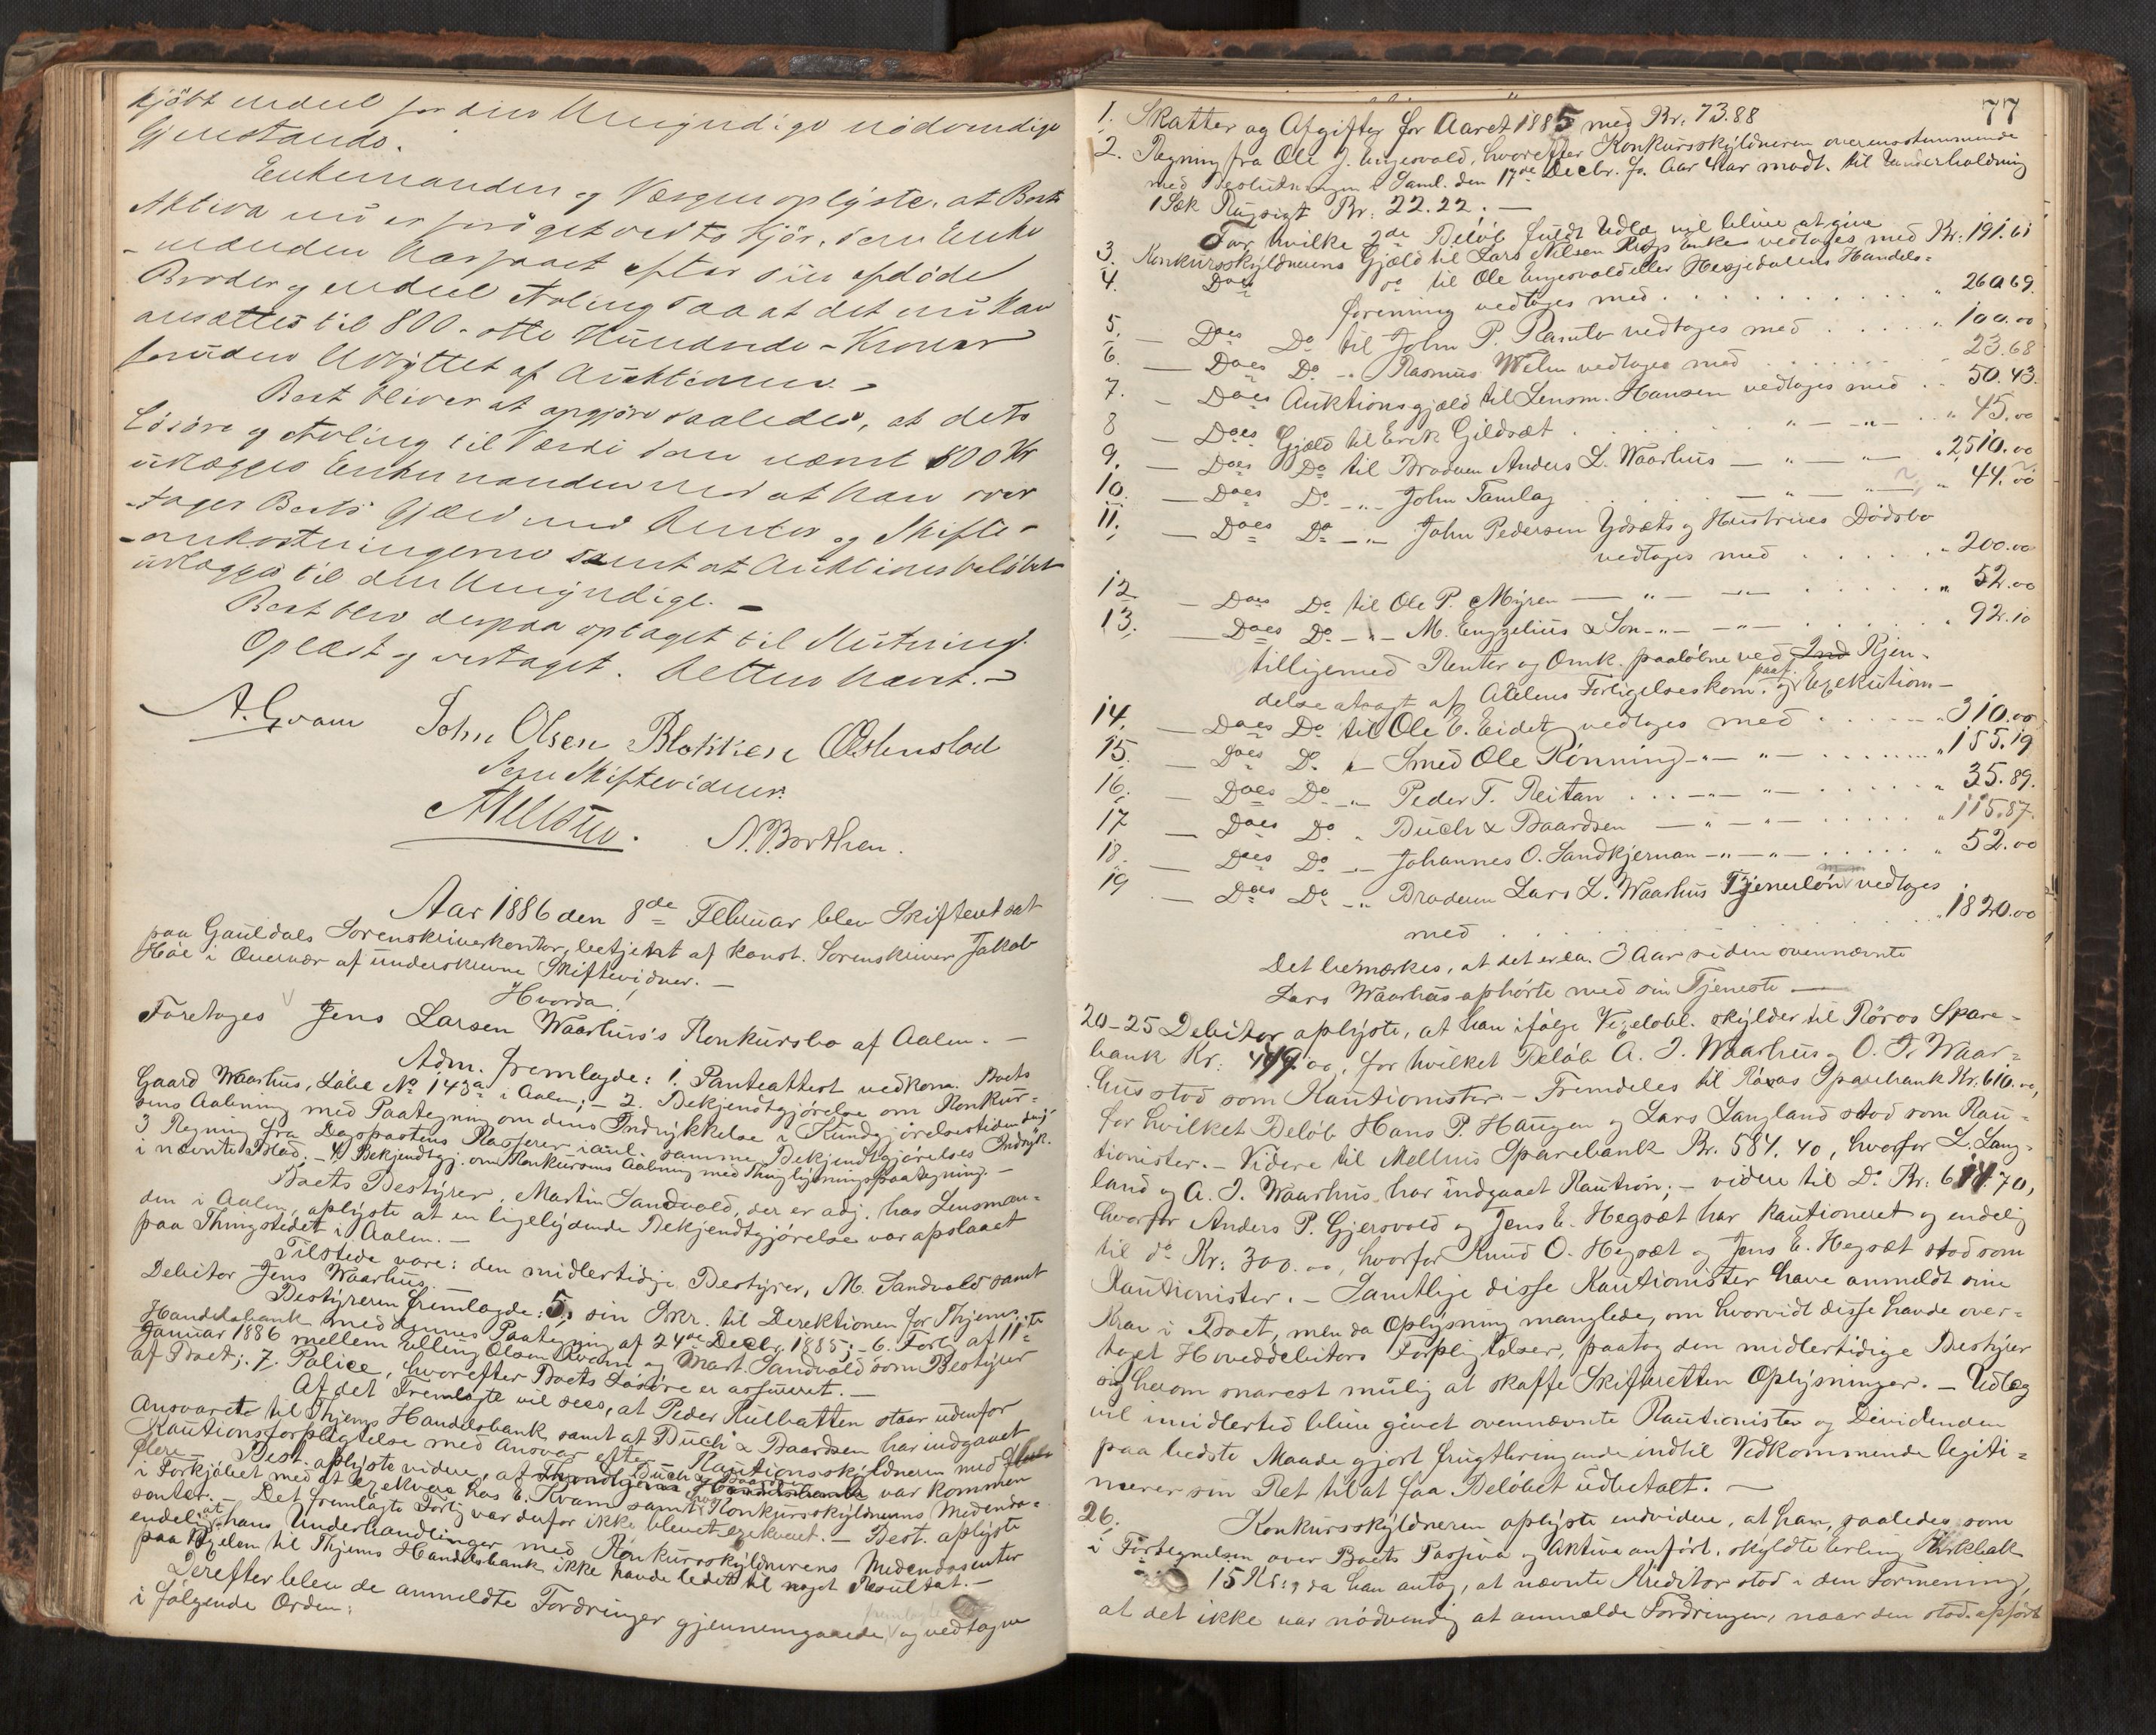 kjöbt endeel for den Umyndige nödvendige
Gjenstande.
Enkemanden og Værgen oplyste, at Boets
Aktiva nu er foröget ved to Kjör, som Enke-
manden har faaet efter sin afdöde
Broder og endeel Avling saa at det nu kan
ansættes til 800 - otte Hundrede - Kroner
foruden Udbyttet af Auktionen. -
Boet bliver at opgjöre saaledes, at dets
Lösöre og Avling til Værdi som nævnt 800 Kr
udlægges Enkemanden mod at han over-
tager Boets Gjæld med Renter og Skifte-
omkostningerne samt at Auktionsbelöbet
udlægges til den Umyndige. -
Boet blev derpaa optaget til Slutning.
Oplæst og vedtaget. Retten hævet. -
A. Gram John Olsen Blokken Østenstad
Som Skiftevidner:
N. Borthen.
Aar 1886 den 8de Februar blev Skifteret sat
paa Gauldals Sorenskriverkontor, betjent af konst. Sorenskriver Jakob
Höe i Overvær af underskrevne Skiftevidner. -
Hvorda!
Foretoges Jens Larsen Waarhus's Konkursbo af Aalen. -
Adm. fremlagde: 1. Panteattest vedkom. Boets
Gaard Waarhus, Löbe No 143a i Aalen; - 2. Bekjendtgjörelse om Konkur-
sens Aabning med Paategning om dens Indrykkelse i Kundgjörelsestidende;
3 Regning fra Dagspostens Kasserer i anl. samme Bekjendtgjörelses Indryk.
i nævnte Blad; - 4) Bekjendtgj. om Konkursens Aabning med Thinglysningspaategning. -
Boets Bestyrer, Martin Sandvold, der er adj. hos Lensman-
den i Aalen, oplyste at en ligelydende Bekjendtgjörelse var opslaaet
paa Thingstedet i Aalen. -
Tilstede vare: den midlertidige Bestyrer, M. Sandvold samt
Debitor Jens Waarhus.
Bestyreren fremlagde: 5, sin Skr. til Direktionen for Thjems
Handelsbank med dennes Paategning af 24de Decbr 1885; - 6. Forlig af 11te
Januar 1886 mellem Elling Olsen Kvam og Mart. Sandvold som Bestyrer
af Boet; 7. Police, hvorefter Boets Lösöre er assureret. -
Af det Fremlagte vil sees, at Peder Kulbatten staar udenfor
Ansvaret til Thjems Handelsbank samt at Buch & Baardsen har indgaaet
Kautionsforpligtelse med Ansvar efter Kautionsskyldneren med
flere - Best. oplyste videre, at Buch & Baardsen var kommen
i Forkjöbet med at exekvere hos E. Kvam samt hos Konkursskyldnerens Medenda-
senter. - Det fremlagte Forlig var derfor ikke blevet exekveret. - Best. oplyste
endelig at hans Underhandlinger med Konkursskyldnerens Medendosenter
paa Gjelden til Thjems Handelsbank ikke havde ledet til noget Resultat. -
Derefter blev de anmeldte Fordringer gjennemgaaede fremlagte og vedtagne
i fölgende Orden:
77
1. Skatter og Afgifter for Aaret 1885 med Kr. 73.88
2. Regning fra Ole J. Engesvold, hvorefter Konkursskyldneren overensstemmende
med Beslutningen i Saml. den 17de Decbr. f. Aar har modt. til Underholdning
1 Sæk Rugsigt Kr. 22.22. -
For hvilke 2de Belöb fuldt Udlæg vil blive at give
3. Konkursskyldnerens Gjæld til Lars Nilsen Enke vedtages med Kr. 191.61
4. Does Do til Ole Engesvold eller Hesjedalens Handels-
forening vedtages med . . . " 260.69.
5. — Does Do til John P. Ramlo vedtages med . . . " 100.00
6. — Does Do -"- Rasmus Welm vedtages med . . . 23.68
7. — Does Auktionsgjæld til Lensm. Hansen vedtages med . . 50.43.
8 — Does Gjæld til Erik Gildsæt . . . " — " — " 45.00
9. — Does Do til Broderen Anders L. Waarhus — " — " — " 2510.00
10. — Does Do -"- John Tamlag . . . — " — " — " 44.00
11. — Does Do -"- John Pedersen Ydsæts og Hustrues Dödsbo
vedtages med . . . " 200.00
12. — Does Do til Ole P. Myren — " — " — . . . " 52.00
13. — Does Do -"- M. Engzelius & Son -"- -"- . . . " 92.10
tilligemed Renter og Omk. paalöbne ved Ind Kjen-
delse afsagt af Aalens Forligelseskom. og paaf. Exekution -
14. — Does Do til Ole E. Eidet vedtages med . . . " 310.00
15. — Does Do " - Smed Ole Rönning -"- " — . . . " 155.19
16. — Does Do -"- Peder T. Reitan . . . -"- " — . . . " 35.89.
17 — Does Do " Buch & Baardsen — " — " — . . . " 115.87.
18. — Does Do -"- Johannes O. Sandkjernan -"- -"- . . . " 52.00
19 — Does Do -"- Broderen Lars L. Waarhus Tjenerlön vedtages
med . . . " 1820.00
Det bemærkes, at det er ca. 3 Aar siden ovennævnte
Lars Waarhus ophörte med sin Tjeneste —
20-25 Debitor oplyste, at han ifölge Vexelobl. skylder til Röros Spare-
bank Kr. 499.00, for hvilket Belöb A. J. Waarhus og O. J. Waar-
hus stod som Kautionister - Fremdeles til Röros Sparebank Kr. 610.00,
for hvilket Belöb Hans P. Haugen og Lars Langland stod som Kau-
tionister. - Videre til Melhus Sparebank Kr. 584.40, hvorfor L. Lang-
land og A. J. Waarhus har indgaaet Kaution; - videre til Do Kr. 614.70,
hvorfor Anders P. Gjersvold og Jens E. Hegsæt har kautioneret og endelig
til do Kr. 300.00, hvorfor Knud O. Hegsæt og Jens E. Hegsæt stod som
Kautionister. - Samtlige disse Kautionister have anmeldt sine
Krav i Boet, men da Oplysning manglede, om hvorvidt disse havde over-
taget Hoveddebitors Forpligtelser, paatog den midlertidige Bestyrer
sig herom snarest mulig at skaffe Skifteretten Oplysninger. - Udlæg
vil imidlertid blive givet ovennævnte Kautionister og Dividenden
paa bedste Maade gjort frugtbringende indtil Vedkommende legiti-
merer sin Ret til at faa Belöbet udbetalt. —
26. Konkursskyldneren oplyste endvidere, at han, saaledes som
i Fortegnelsen over Boets Passiva og Aktiva anfört, skyldte Erling Kirkbak
15 Kr., da han antog, at nævnte Kreditor stod i den Formening,
at det ikke var nödvendig at anmelde Fordringen, naar den stod opfört